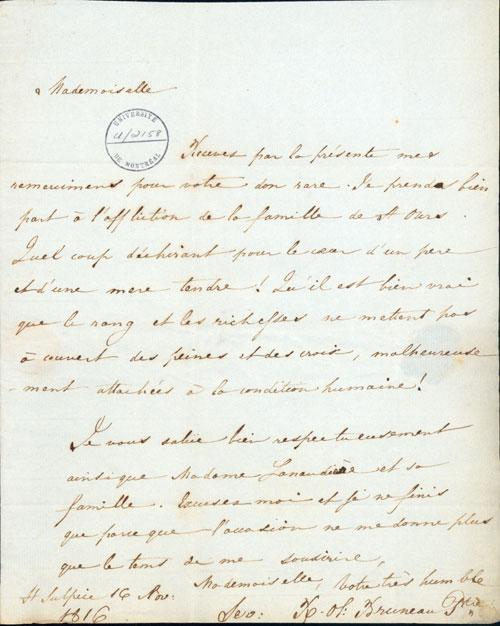 Mademoiselle
UNIVERSITÉ
U/2158
DE MONTRÉAL
Recuves par la présente mes
remercimens pour votre don rare. Je prends bien
part à l'affliction de la famille de St Ours.
Quel coup déchirant pour le cœur d'un pere
et d'une mere tendre! Qu'il est bien vrai
que le rang et les richesses ne mettent pas
à couvert des peines et des croix, malheureuse
-ment attachées à la condition humaine!
Je vous salue bien respectueusement
ainsi que Madame Lanaudière et sa
famille. Excuses moi et je ne finis
que parce que l'occasion ne me donne plus
que le tems de me souscrire,
Mademoiselle, Votre très humble
St Sulpice 16 Nov:
1816 Serv: Bruneau Ptre